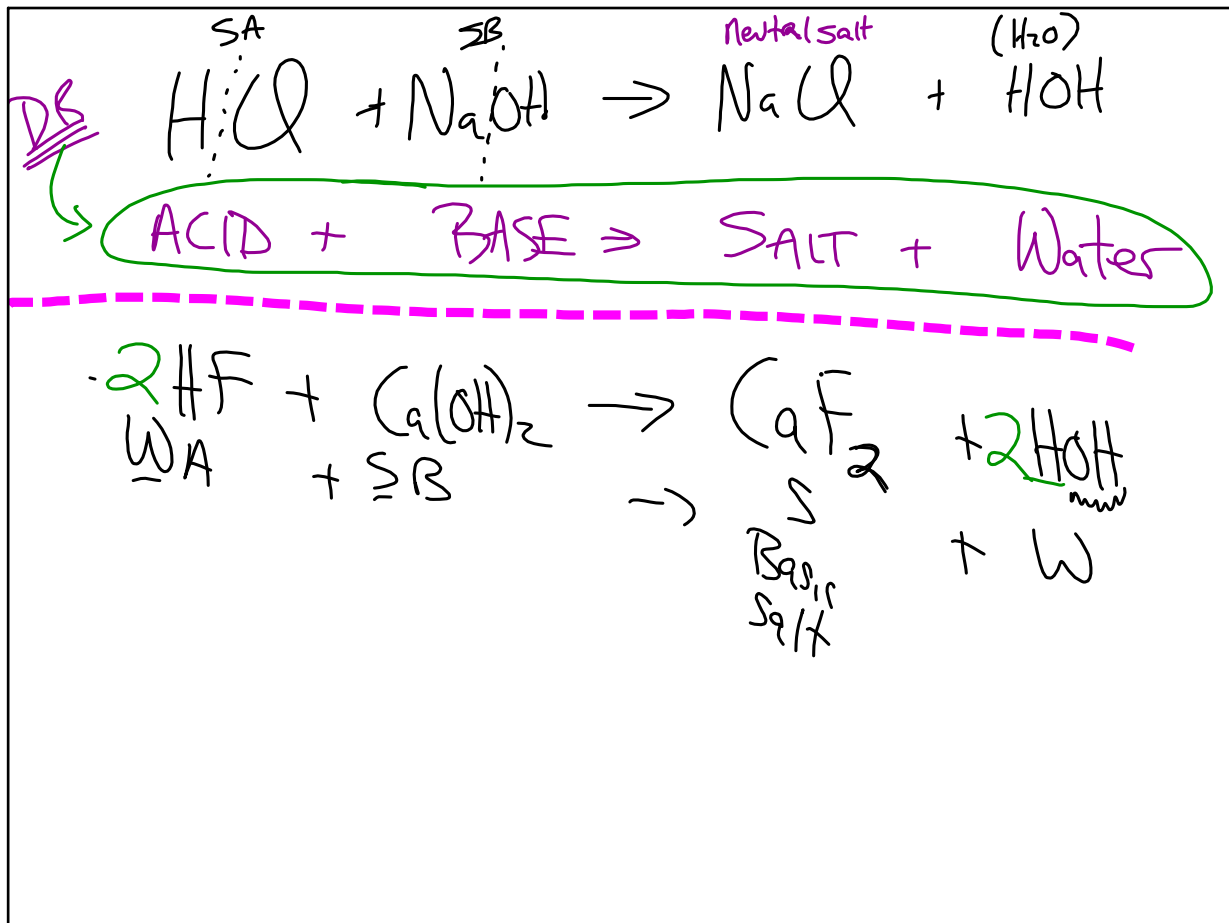 SA SB neutal salt (H2O)
HCl + NaOH → NaCl + HOH
DR
ACID + BASE ⇒ SALT + Water
2HF + Ca(OH)2 → CaF2 + 2HOH
WA + SB → S + W
Basic
Salt